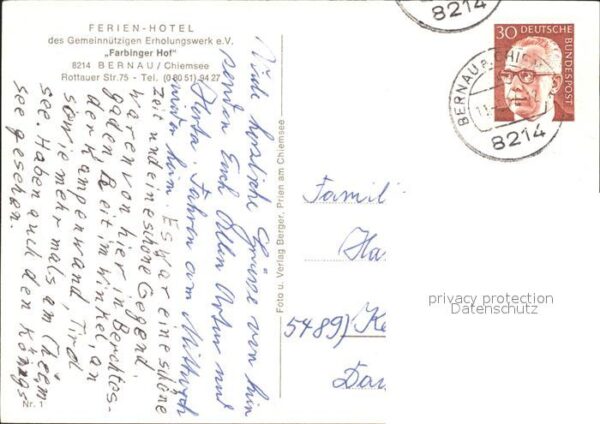 FERIEN-HOTEL
des Gemeinnützigen Erholungswerk e.V.
„Farbinger Hof"
8214 BERNAU/Chiemsee
Rottauer Str.75 - Tel. (0 80 51) 94 27
Viele herzliche Grüsse von hier
senden Emil Arthur und
Herta. Fahren am Mittwoch
wieder heim. Es war eine schöne
Zeit und eine schöne Gegend.
Waren von hier in Berchtes-
gaden, Reit im Winkel, an
der Kampenwand, Tirol
sowie mehrmals am Chiem
see. Haben auch den Königs
see gesehen.
Nr. 1
Foto u. Verlag Berger, Prien am Chiemsee
8214
30 DEUTSCHE
BUNDESPOST
BERNAU A. CHIEM
8214
Famil
Ha
5489) Ke
Dau
privacy protection
Datenschutz